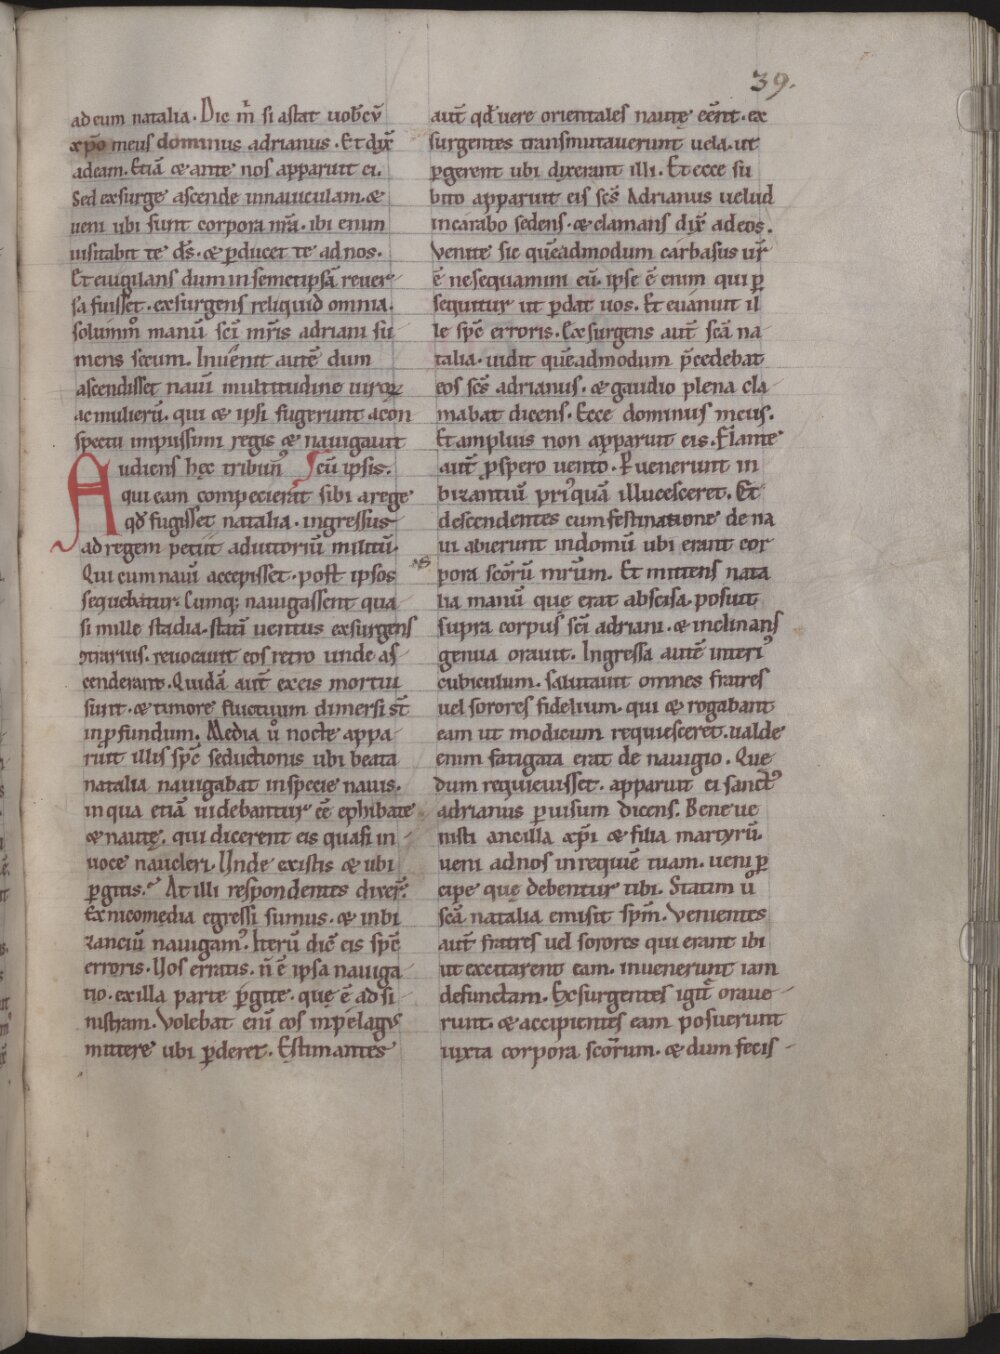 39.
ad eum natalia. Dic m̄ si astat uob̄cū
xp̄o meus dominus adrianus. Et dix̄
ad eam. Etiā & ante nos apparuit ei.
Sed exsurge ascende innauiculam. &
ueni ubi sunt corpora nr̄a. ibi enim
uisitabit te d̄s. & ꝑducet te ad nos.
Et euigilans dum in semetipsā reuer
sa fuisset. exsurgens reliquid omnia.
solummͦ manū sc̄i mr̄is adriani su
mens secum. Inuenit autē dum
ascendisset nauī multitudine uiroꝝ
ac mulierū. qui & ipsi fugerunt acon
spectu impiissimi regis & nauigauit
Audiens hęc tribunꝰ cū ipsis.
qui eam compecierat sibi arege
qd̄ fugisset natalia. ingressus
ad regem petiit adiutoriū militū.
Qui cum nauī accepisset. post ipsos
sequebatur. Cumq; nauigassent qua
si mille stadia. statī uentus exsurgens
ꝯtrarius. reuocauit eos retro unde as
cenderant. Quidā aut̄ ex eis mortui
sunt. & timore fluctuum dimersi st̄
in ꝓfundum. Media ů nocte appa
ruit illis spc̄ seductionis ubi beata
natalia nauigabat in specie nauis.
in qua etiā uidebantur eē ephibate
& nautę. qui dicerent eis quasi in
uoce naucleri. Unde existis & ubi
ꝑgitis. At illi respondentes dixer̄.
Ex nicomedia egressi sumus. & inbi
zanciū nauigamꝰ. Iterū dic̄ eis spc̄
erroris. Uos erratis. n̄ ē ipsa nauiga
tio. ex illa parte ꝑgite. que ē ad si
nistram. Volebat enī eos in pelagus
mittere ubi ꝑderet. Estimantes
aut̄ qd̄ uere orientales nautę eēnt. ex
surgentes transmutauerunt uela. ut
ꝑgerent ubi dixerant illi. Et ecce su
bito apparuit eis sc̄s Adrianus uelud
in carabo sedens. & clamans dix̄ ad eos.
Venite sic quēadmodum carbasus ur̄
ē ne sequamini eū. ipse ē enim qui ꝑ
sequitur ut ꝑdat uos. Et euanuit il
le spc̄ erroris. Exsurgens aut̄ sc̄a na
talia. uidit quēadmodum p̄cedebat
eos sc̄s adrianus. & gaudio plena cla
mabat dicens. Ecce dominus meus.
Et amplius non apparuit eis. Flante
aut̄ ꝓspero uento. Puenerunt in
bizantiū priꝰquā illucesceret. Et
descendentes cum festinatione de na
ui abierunt indomū ubi erant cor
pora sc̄orū mr̄um. Et mittens nata
lia manū quę erat abscisa. posuit
supra corpus sc̄i adriani. & inclinans
genua orauit. Ingressa autē interiꝰ
cubiculum. salutauit omnes fratres
uel sorores fidelium. qui & rogabant
eam ut modicum requiesceret. ualde
enim fatigata erat de nauigio. Que
dum requieuisset. apparuit ei sanctꝰ
adrianus ꝑ uisum dicens. Bene ue
nisti ancilla xp̄i & filia martyrū.
ueni ad nos in requiē tuam. ueni ꝑ
cipe quę debentur tibi. Statim ů
sc̄a natalia emisit spm̄. Venientes
aut̄ fratres uel sorores qui erant ibi
ut excitarent eam. inuenerunt iam
defunctam. Exsurgentes igit̄ oraue
runt. & accipientes eam posuerunt
iuxta corpora sc̄orum. & dum fecis